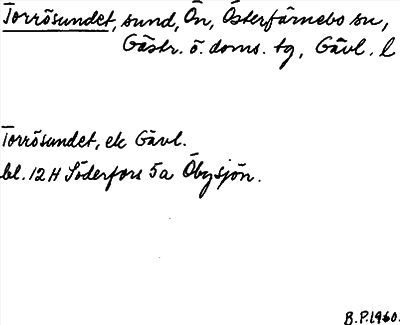 Torrösundet, sund, Ön, Österfärnebo sn,
Gästr. ö. doms. tg, Gävl. l
Torrösundet, ek Gävl.
bl. 12 H Söderfors 5a Öbysjön.
B.P. 1960.